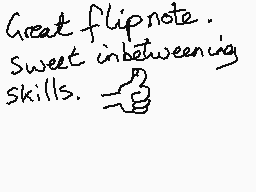 Great flipnote.
Sweet inbetweening
skills.